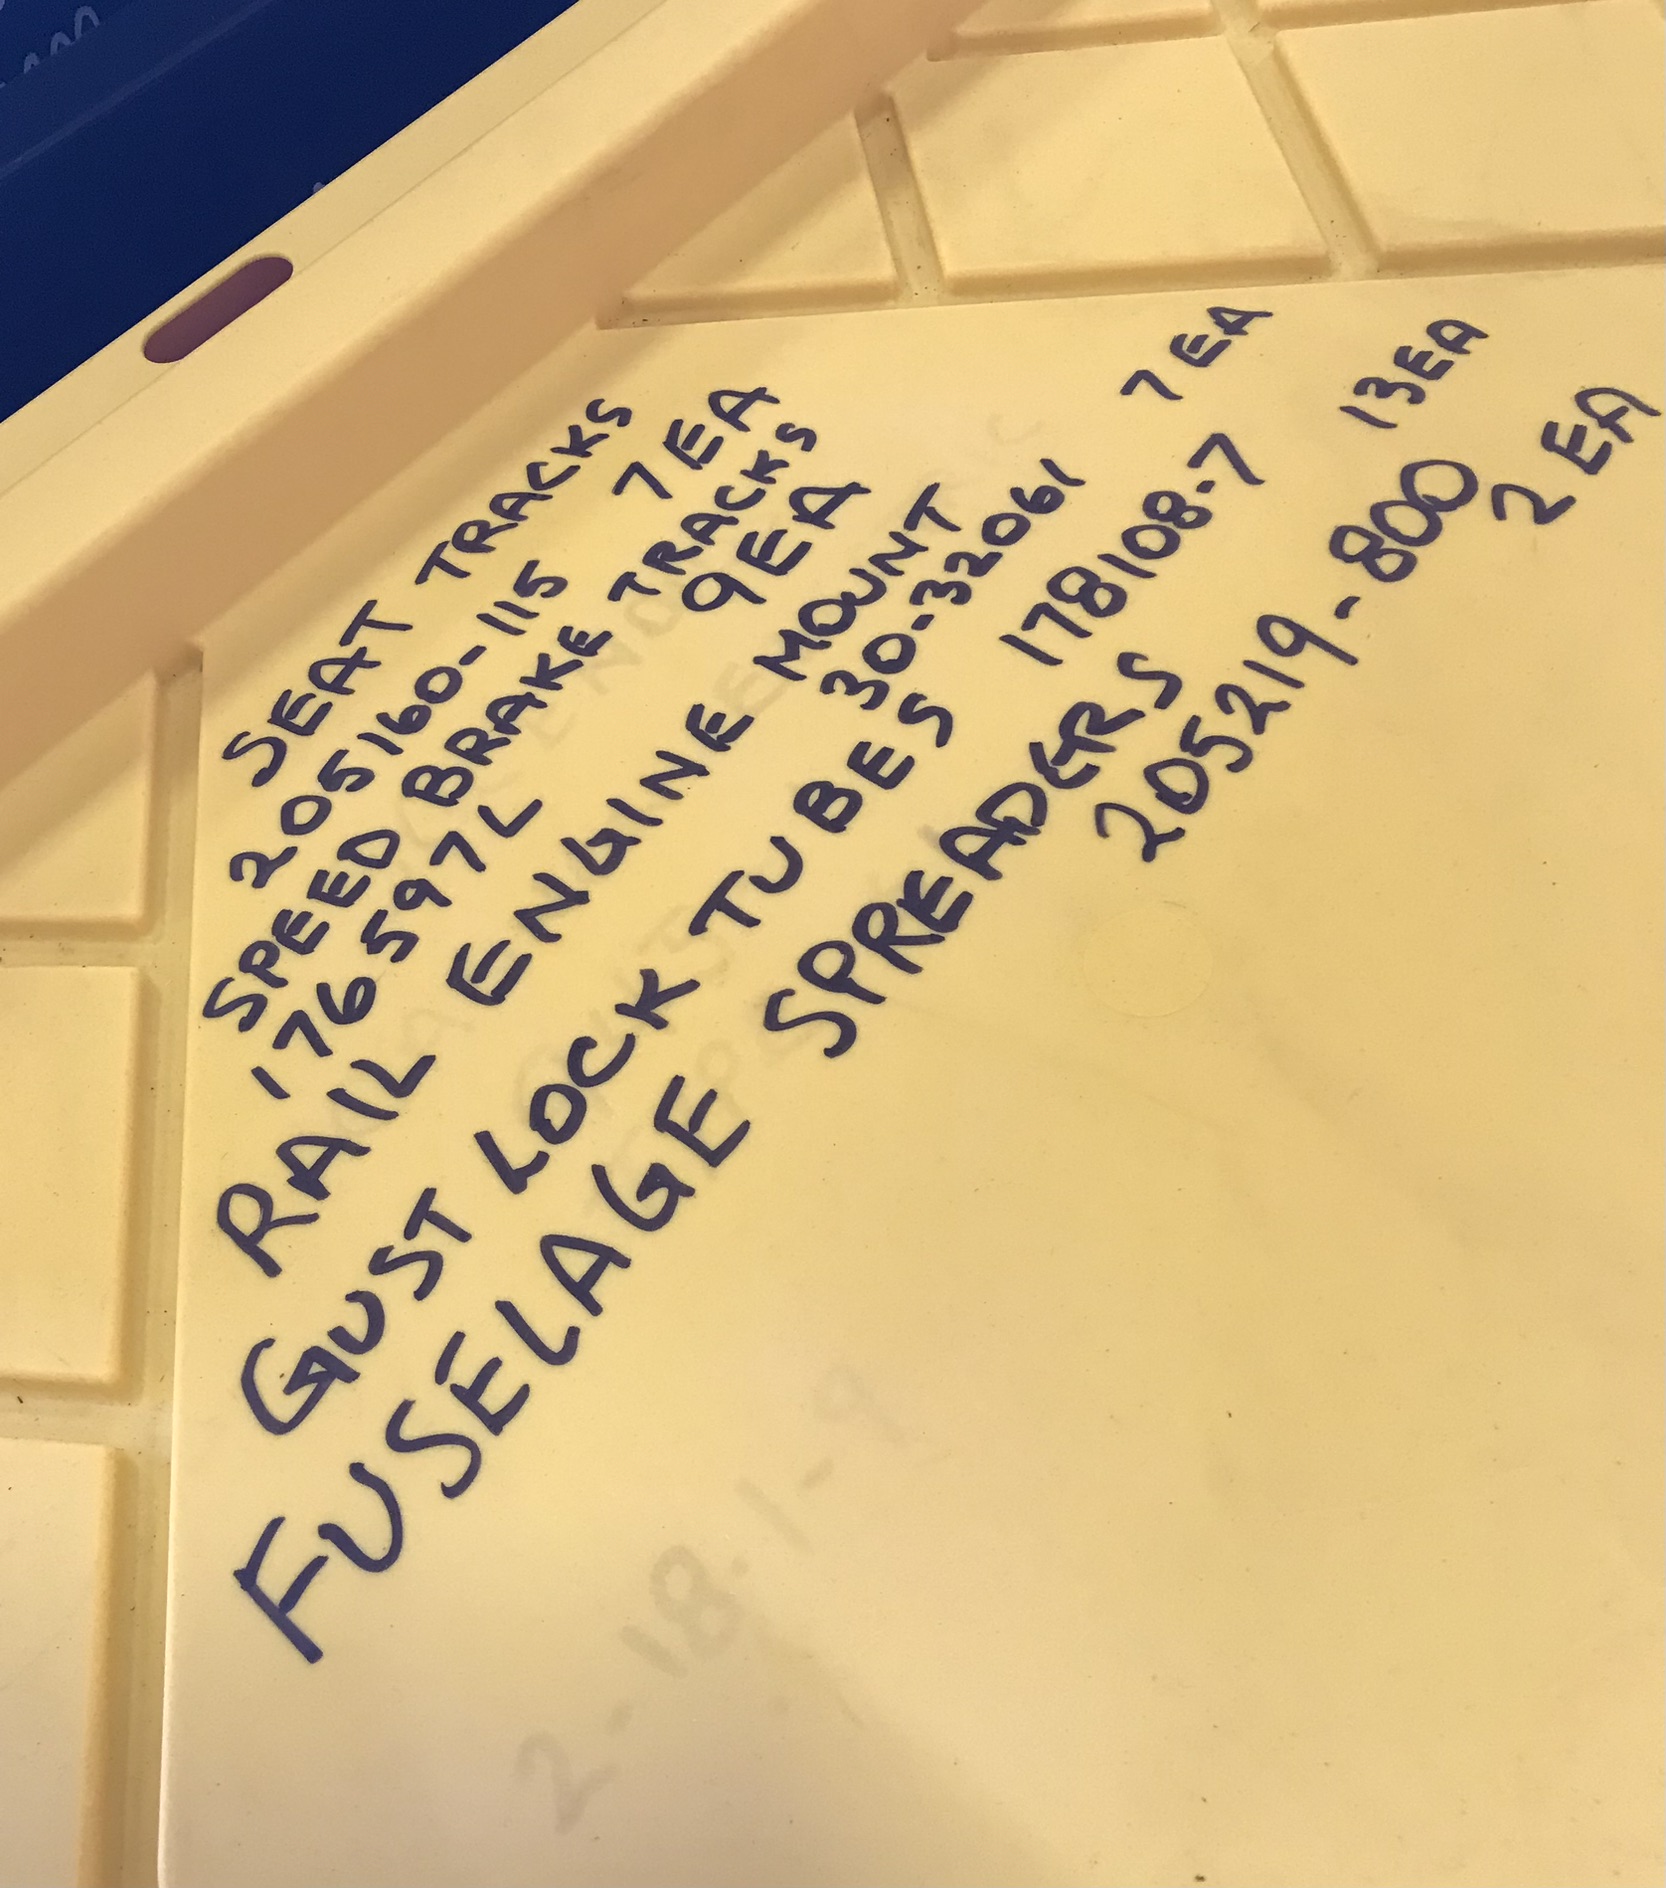 SEAT TRACKS
205160-115 7 EA
SPEED BRAKE TRACKS
176597L 9 EA
RAIL ENGINE MOUNT
30-32061 7 EA
GUST LOCK TUBES 178108-7 13 EA
FUSELAGE SPREADERS
205219-800 2 EA
2-18-1-9